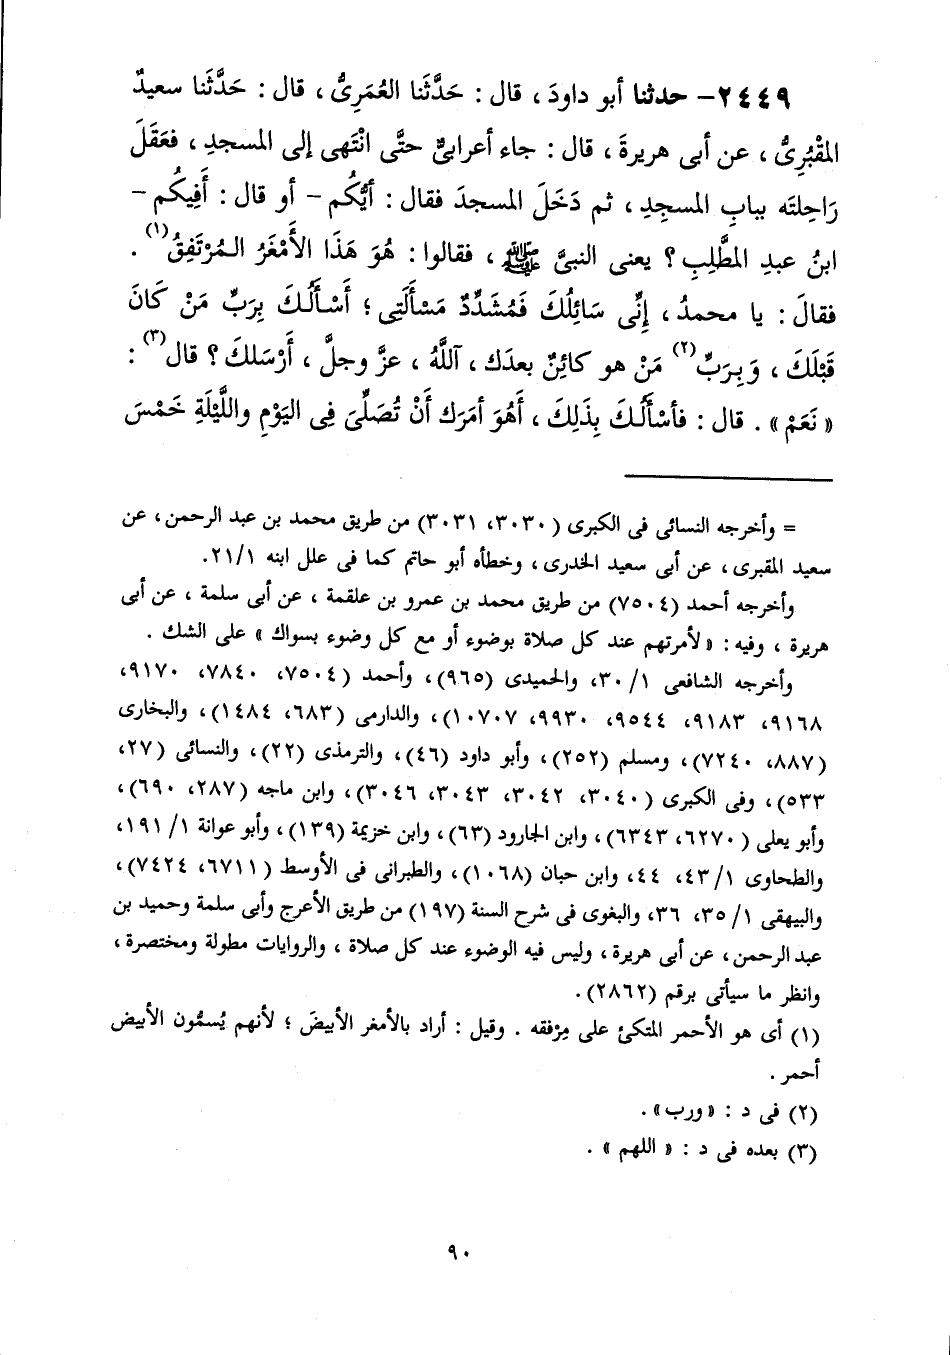 ٢٤٤٩- حدثنا أبو داودَ ، قال : حَدَّثَنا العُمَرِىُّ ، قال : حَدَّثَنا سعيدٌ
المقْبُرِىُّ ، عن أبى هريرةَ ، قال : جاء أعرابىٌّ حتَّى انْتَهى إلى المسجدِ ، فعَقَلَ
رَاحِلتَه ببابِ المسجِدِ ، ثم دَخَلَ المسجدَ فقال : أيُّكُم - أو قال : أَفِيكُم -
ابنُ عبدِ المطَّلِبِ ؟ يعنى النبىَّ ﷺ ، فقالوا : هُوَ هَذَا الأَمْغَرُ المُرْتَفِقُ(١) .
فقالَ : يا محمدُ ، إِنِّى سَائِلُكَ فَمُشَدِّدٌ مَسْأَلَتِى ؛ أَسْأَلُكَ بِرَبِّ مَنْ كَانَ
قَبْلَكَ ، وَبِرَبِّ(٢) مَنْ هو كائِنٌ بعدَك ، آللَّهُ ، عزَّ وجلَّ ، أَرْسَلكَ ؟ قال(٣) :
« نَعَمْ » . قال : فأَسْأَلُكَ بِذَلِكَ ، أَهُوَ أمَرَك أَنْ تُصَلِّىَ فِى اليَوْمِ واللَّيْلَةِ خَمْسَ
= وأخرجه النسائى فى الكبرى (٣٠٣٠، ٣٠٣١) من طريق محمد بن عبد الرحمن ، عن
سعيد المقبرى ، عن أبى سعيد الخدرى ، وخطأه أبو حاتم كما فى علل ابنه ٢١/١.
وأخرجه أحمد (٧٥٠٤) من طريق محمد بن عمرو بن علقمة ، عن أبى سلمة ، عن أبى
هريرة ، وفيه : « لأمرتهم عند كل صلاة بوضوء أو مع كل وضوء بسواك » على الشك .
وأخرجه الشافعى ٣٠/١، والحميدى (٩٦٥)، وأحمد (٧٥٠٤، ٧٨٤٠، ٩١٧٠،
٩١٦٨، ٩١٨٣، ٩٥٤٤، ٩٩٣٠، ١٠٧٠٧)، والدارمى (٦٨٣، ١٤٨٤)، والبخارى
(٨٨٧، ٧٢٤٠)، ومسلم (٢٥٢)، وأبو داود (٤٦)، والترمذى (٢٢)، والنسائى (٢٧،
٥٣٣)، وفى الكبرى (٣٠٤٠، ٣٠٤٢، ٣٠٤٣، ٣٠٤٦)، وابن ماجه (٢٨٧، ٦٩٠)،
وأبو يعلى (٦٢٧٠، ٦٣٤٣)، وابن الجارود (٦٣)، وابن خزيمة (١٣٩)، وأبو عوانة ١٩١/١،
والطحاوى ٤٣/١، ٤٤، وابن حبان (١٠٦٨)، والطبرانى فى الأوسط (٦٧١١، ٧٤٢٤)،
والبيهقى ٣٥/١، ٣٦، والبغوى فى شرح السنة (١٩٧) من طريق الأعرج وأبى سلمة وحميد بن
عبد الرحمن ، عن أبى هريرة ، وليس فيه الوضوء عند كل صلاة ، والروايات مطولة ومختصرة ،
وانظر ما سيأتى برقم (٢٨٦٢).
(١) أى هو الأحمر المتكئ على مِرْفقه . وقيل : أراد بالأمغر الأبيضَ ؛ لأنهم يُسمُّون الأبيض
أحمر .
(٢) فى د : « ورب » .
(٣) بعده فى د : « اللهم » .
٩٠